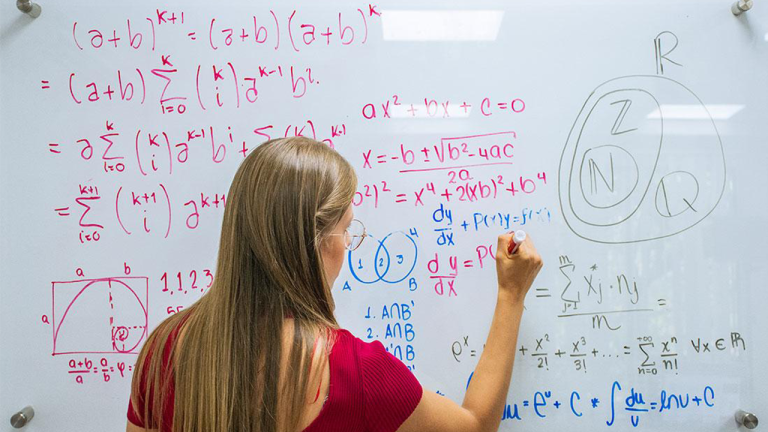 (a+b)^{k+1} = (a+b)(a+b)^k
= (a+b) \sum_{i=0}^{k} \binom{k}{i} a^{k-1} b^{i}
= a \sum_{i=0}^{k} \binom{k}{i} a^{k-1} b^i +
= \sum_{i=0}^{k+1} \binom{k+1}{i} a^{k+1
ax² + bx + c = 0
x = \frac{-b ± \sqrt{b² - 4ac}}{2a}
b²)² = x⁴ + 2(xb)² + b⁴
\frac{dy}{dx} + P(x)y = f(x)
\frac{dy}{dx} = P(
R
Z
N
Q
1 2 3
A B
U
1. A∩B'
2. A∩B
'∩B
'∩B'
a b
a
\frac{a+b}{a} = \frac{a}{b} = φ
1,1,2,3
= \frac{\sum_{j=1}^{m} x_j^* \cdot n_j}{m} =
e^x = + \frac{x²}{2!} + \frac{x³}{3!} + ... = \sum_{n=0}^{+∞} \frac{x^n}{n!} ∀x ∈ R
du = e^u + C * ∫ \frac{du}{u} = ln u + C